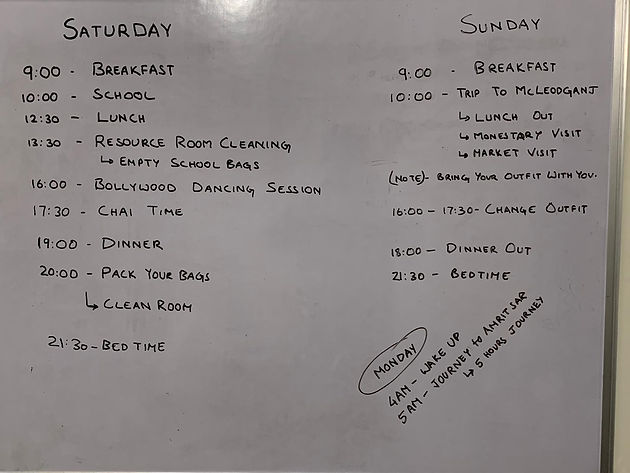 SATURDAY
9:00 - BREAKFAST
10:00 - SCHOOL
12:30 - LUNCH
13:30 - RESOURCE ROOM CLEANING
↳ EMPTY SCHOOL BAGS
16:00 - BOLLYWOOD DANCING SESSION
17:30 - CHAI TIME
19:00 - DINNER
20:00 - PACK YOUR BAGS
↳ CLEAN ROOM
21:30 - BED TIME
SUNDAY
9:00 - BREAKFAST
10:00 - TRIP TO MCLEODGANJ
↳ LUNCH OUT
↳ MONESTARY VISIT
↳ MARKET VISIT
(NOTE)- BRING YOUR OUTFIT WITH YOU.
16:00 - 17:30 - CHANGE OUTFIT
18:00 - DINNER OUT
21:30 - BEDTIME
MONDAY
4AM - WAKE UP
5AM - JOURNEY to AMRITSAR
↳ 5 HOURS JOURNEY